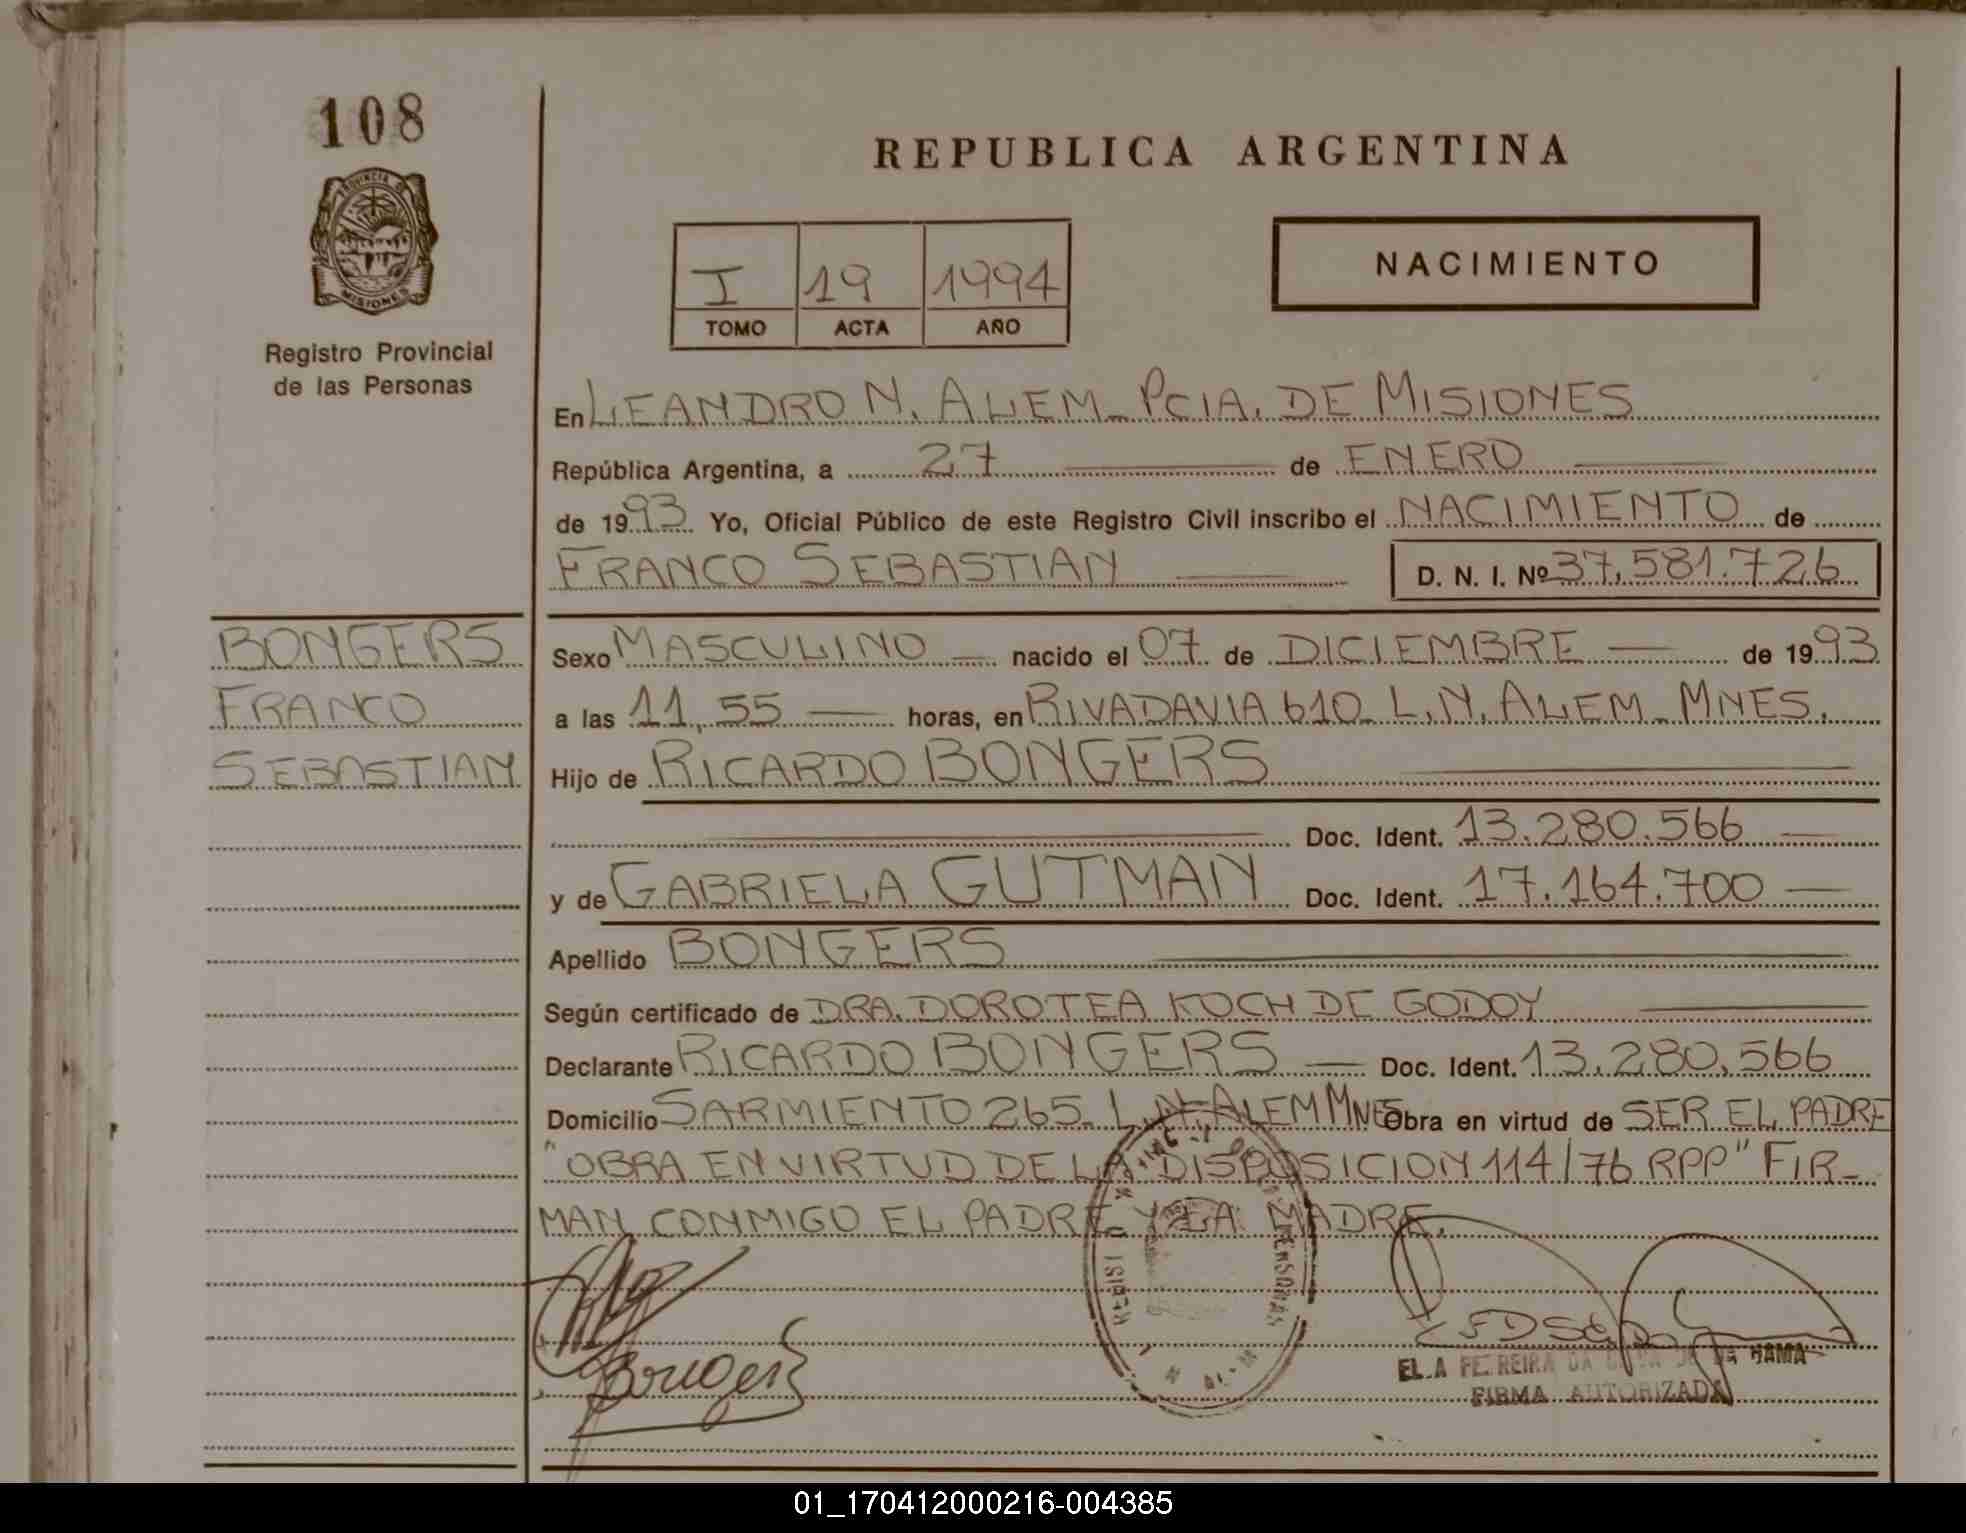 108
PROVINCIA DE
MISIONES
Registro Provincial
de las Personas
REPUBLICA ARGENTINA
I 19 1994
TOMO ACTA AÑO
NACIMIENTO
En LEANDRO N. ALEM_PCIA. DE MISIONES
República Argentina, a 27 de ENERO
de 1993 Yo, Oficial Público de este Registro Civil inscribo el NACIMIENTO de
FRANCO SEBASTIAN D. N. I. Nº 37.581.726
BONGERS
FRANCO
SEBASTIAN
Sexo MASCULINO nacido el 07 de DICIEMBRE de 1993
a las 11,55 horas, en RIVADAVIA 610_L.N. ALEM_MNES.
Hijo de RICARDO BONGERS
Doc. Ident. 13.280.566
y de GABRIELA GUTMAN Doc. Ident. 17.164.700
Apellido BONGERS
Según certificado de DRA. DOROTEA KOCH DE GODOY
Declarante RICARDO BONGERS Doc. Ident. 13.280.566
Domicilio SARMIENTO 265_L.N.ALEM MNES Obra en virtud de SER EL PADRE
"OBRA EN VIRTUD DE LA DISPOSICION 114/76 RPP" FIR-
MAN CONMIGO EL PADRE Y LA MADRE.
Bongers
FIRMA AUTORIZADA
01_170412000216-004385